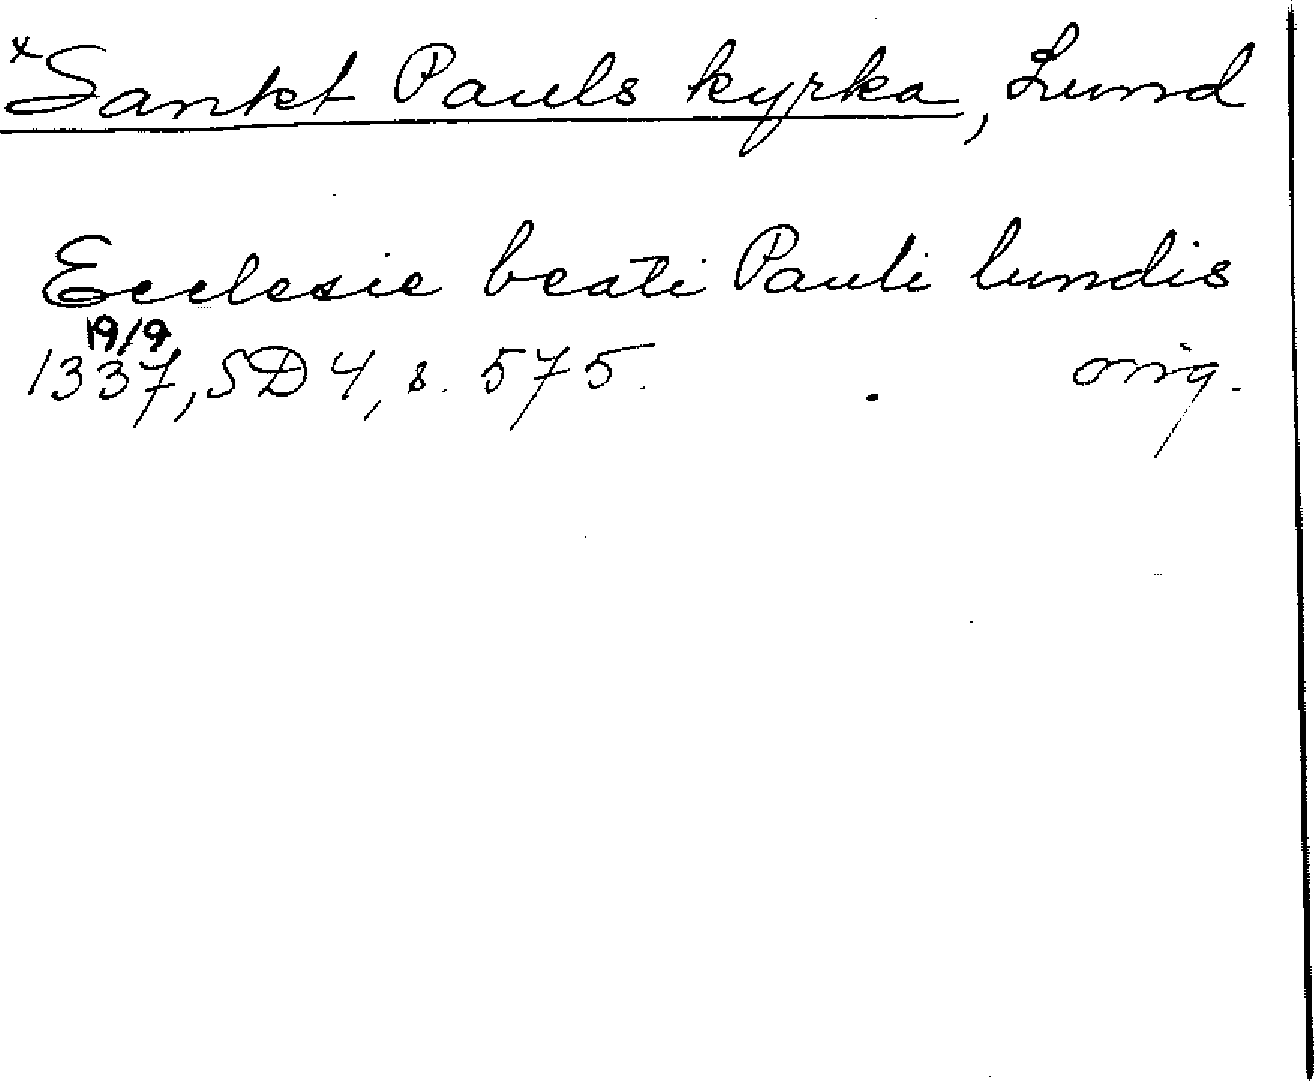 ×Sankt Pauls kyrka, Lund
Ecclesie beati Pauli lundis
19/9
1337, SD 4, s. 575. orig.